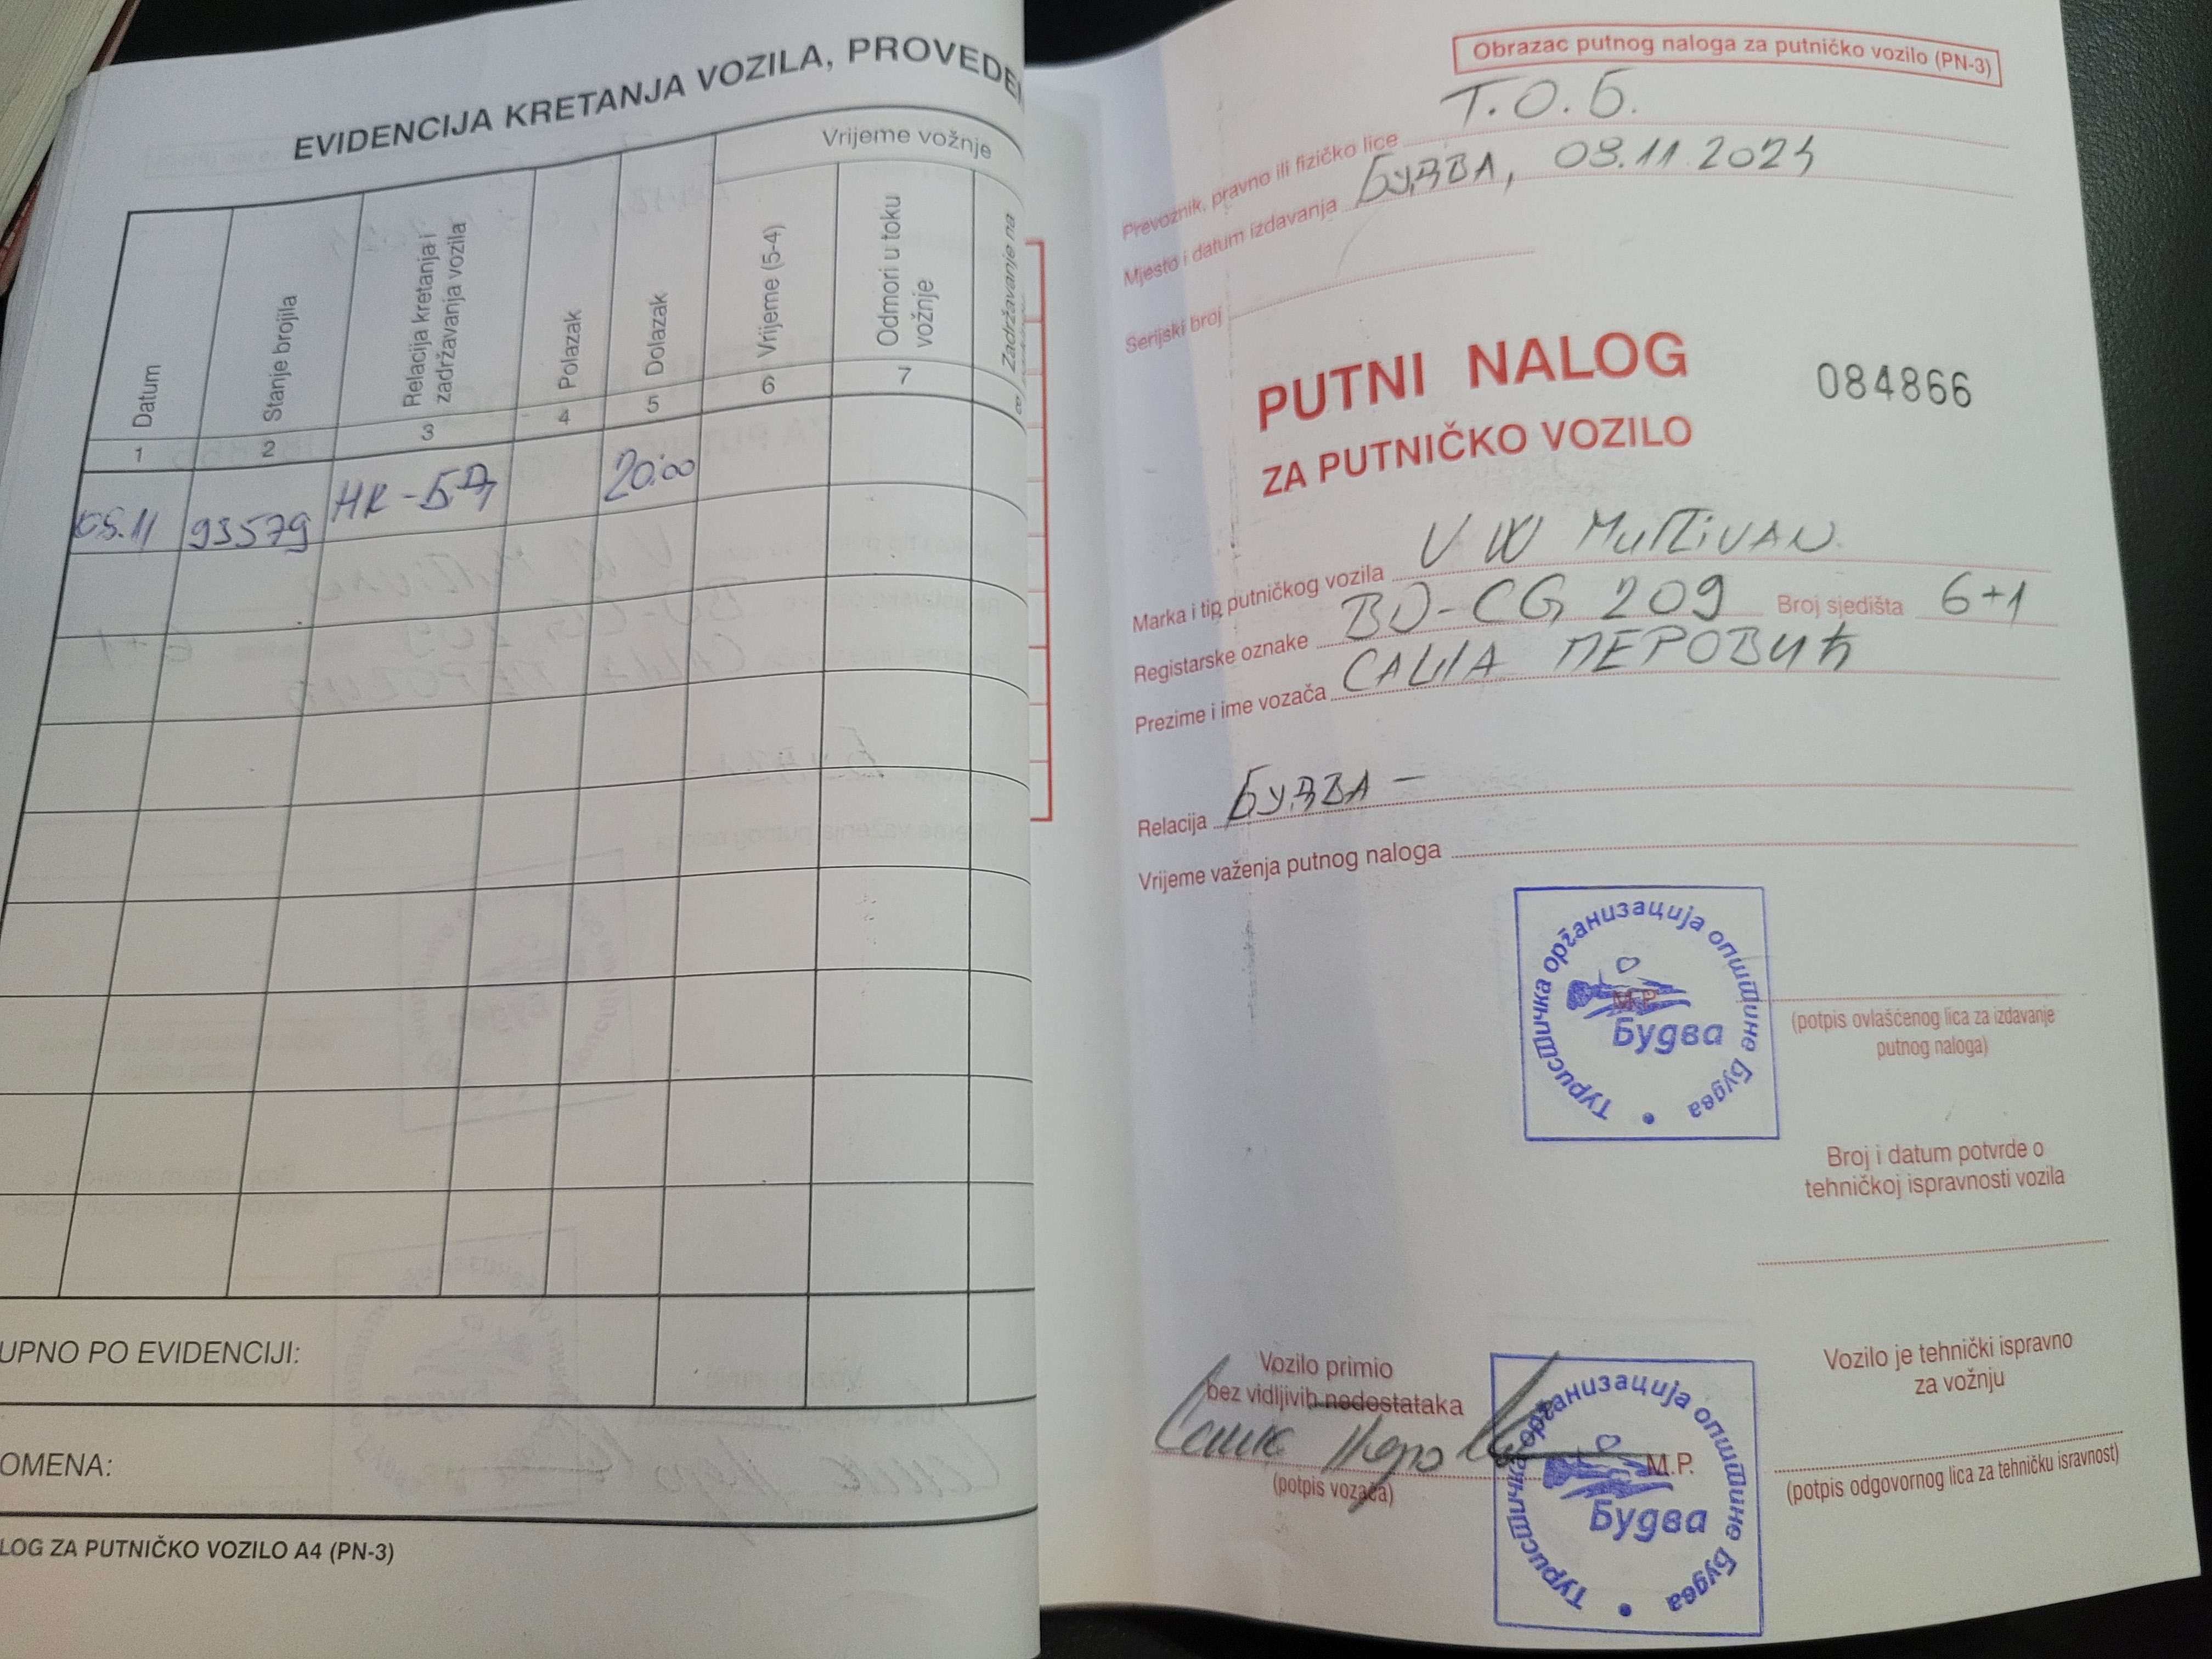 EVIDENCIJA KRETANJA VOZILA, PROVEDE
Vrijeme vožnje
Datum
Stanje brojila
Relacija kretanja i zadržavanja vozila
Polazak
Dolazak
Vrijeme (5-4)
Odmori u toku vožnje
Zadržavanje na
1 2 3 4 5 6 7
93579 HR-БД 20:00
UPNO PO EVIDENCIJI:
OMENA:
LOG ZA PUTNIČKO VOZILO A4 (PN-3)
Obrazac putnog naloga za putničko vozilo (PN-3)
Prevoznik, pravno ili fizičko lice Т.О.Б.
Mjesto i datum izdavanja БУДВА,
Serijski broj
PUTNI NALOG
084866
ZA PUTNIČKO VOZILO
Marka i tip putničkog vozila VW MULTIVAN
Registarske oznake BD-CG 209 Broj sjedišta 6+1
Prezime i ime vozača САША ПЕРОВИЋ
Relacija БУДВА -
Vrijeme važenja putnog naloga
Туристичка организација општине Будва
М.Р.
Будва
(potpis ovlašćenog lica za izdavanje
putnog naloga)
Broj i datum potvrde o
tehničkoj ispravnosti vozila
Vozilo primio
bez vidljivih nedostataka
(potpis vozača)
Туристичка организација општине Будва
M.P.
Будва
Vozilo je tehnički ispravno
za vožnju
(potpis odgovornog lica za tehničku isravnost)